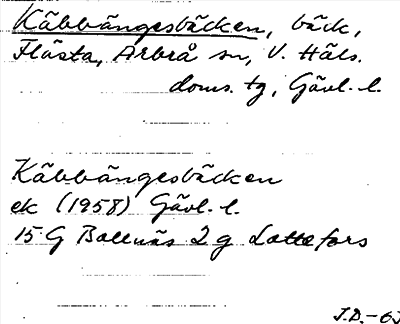 Käbbängesbäcken, bäck,
Flästa, Arbrå sn, V. Häls.
doms. tg, Gävl. l.
Käbbängesbäcken
ek (1958) Gävl. l.
15 G Bollnäs 2 g Lottefors
J.D.-63